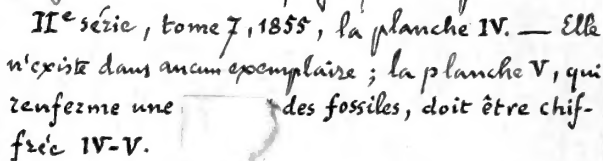 IIe série, tome 7, 1855, la planche IV. — Elle
n'existe dans aucun exemplaire ; la planche V, qui
renferme une des fossiles, doit être chif-
frée IV-V.